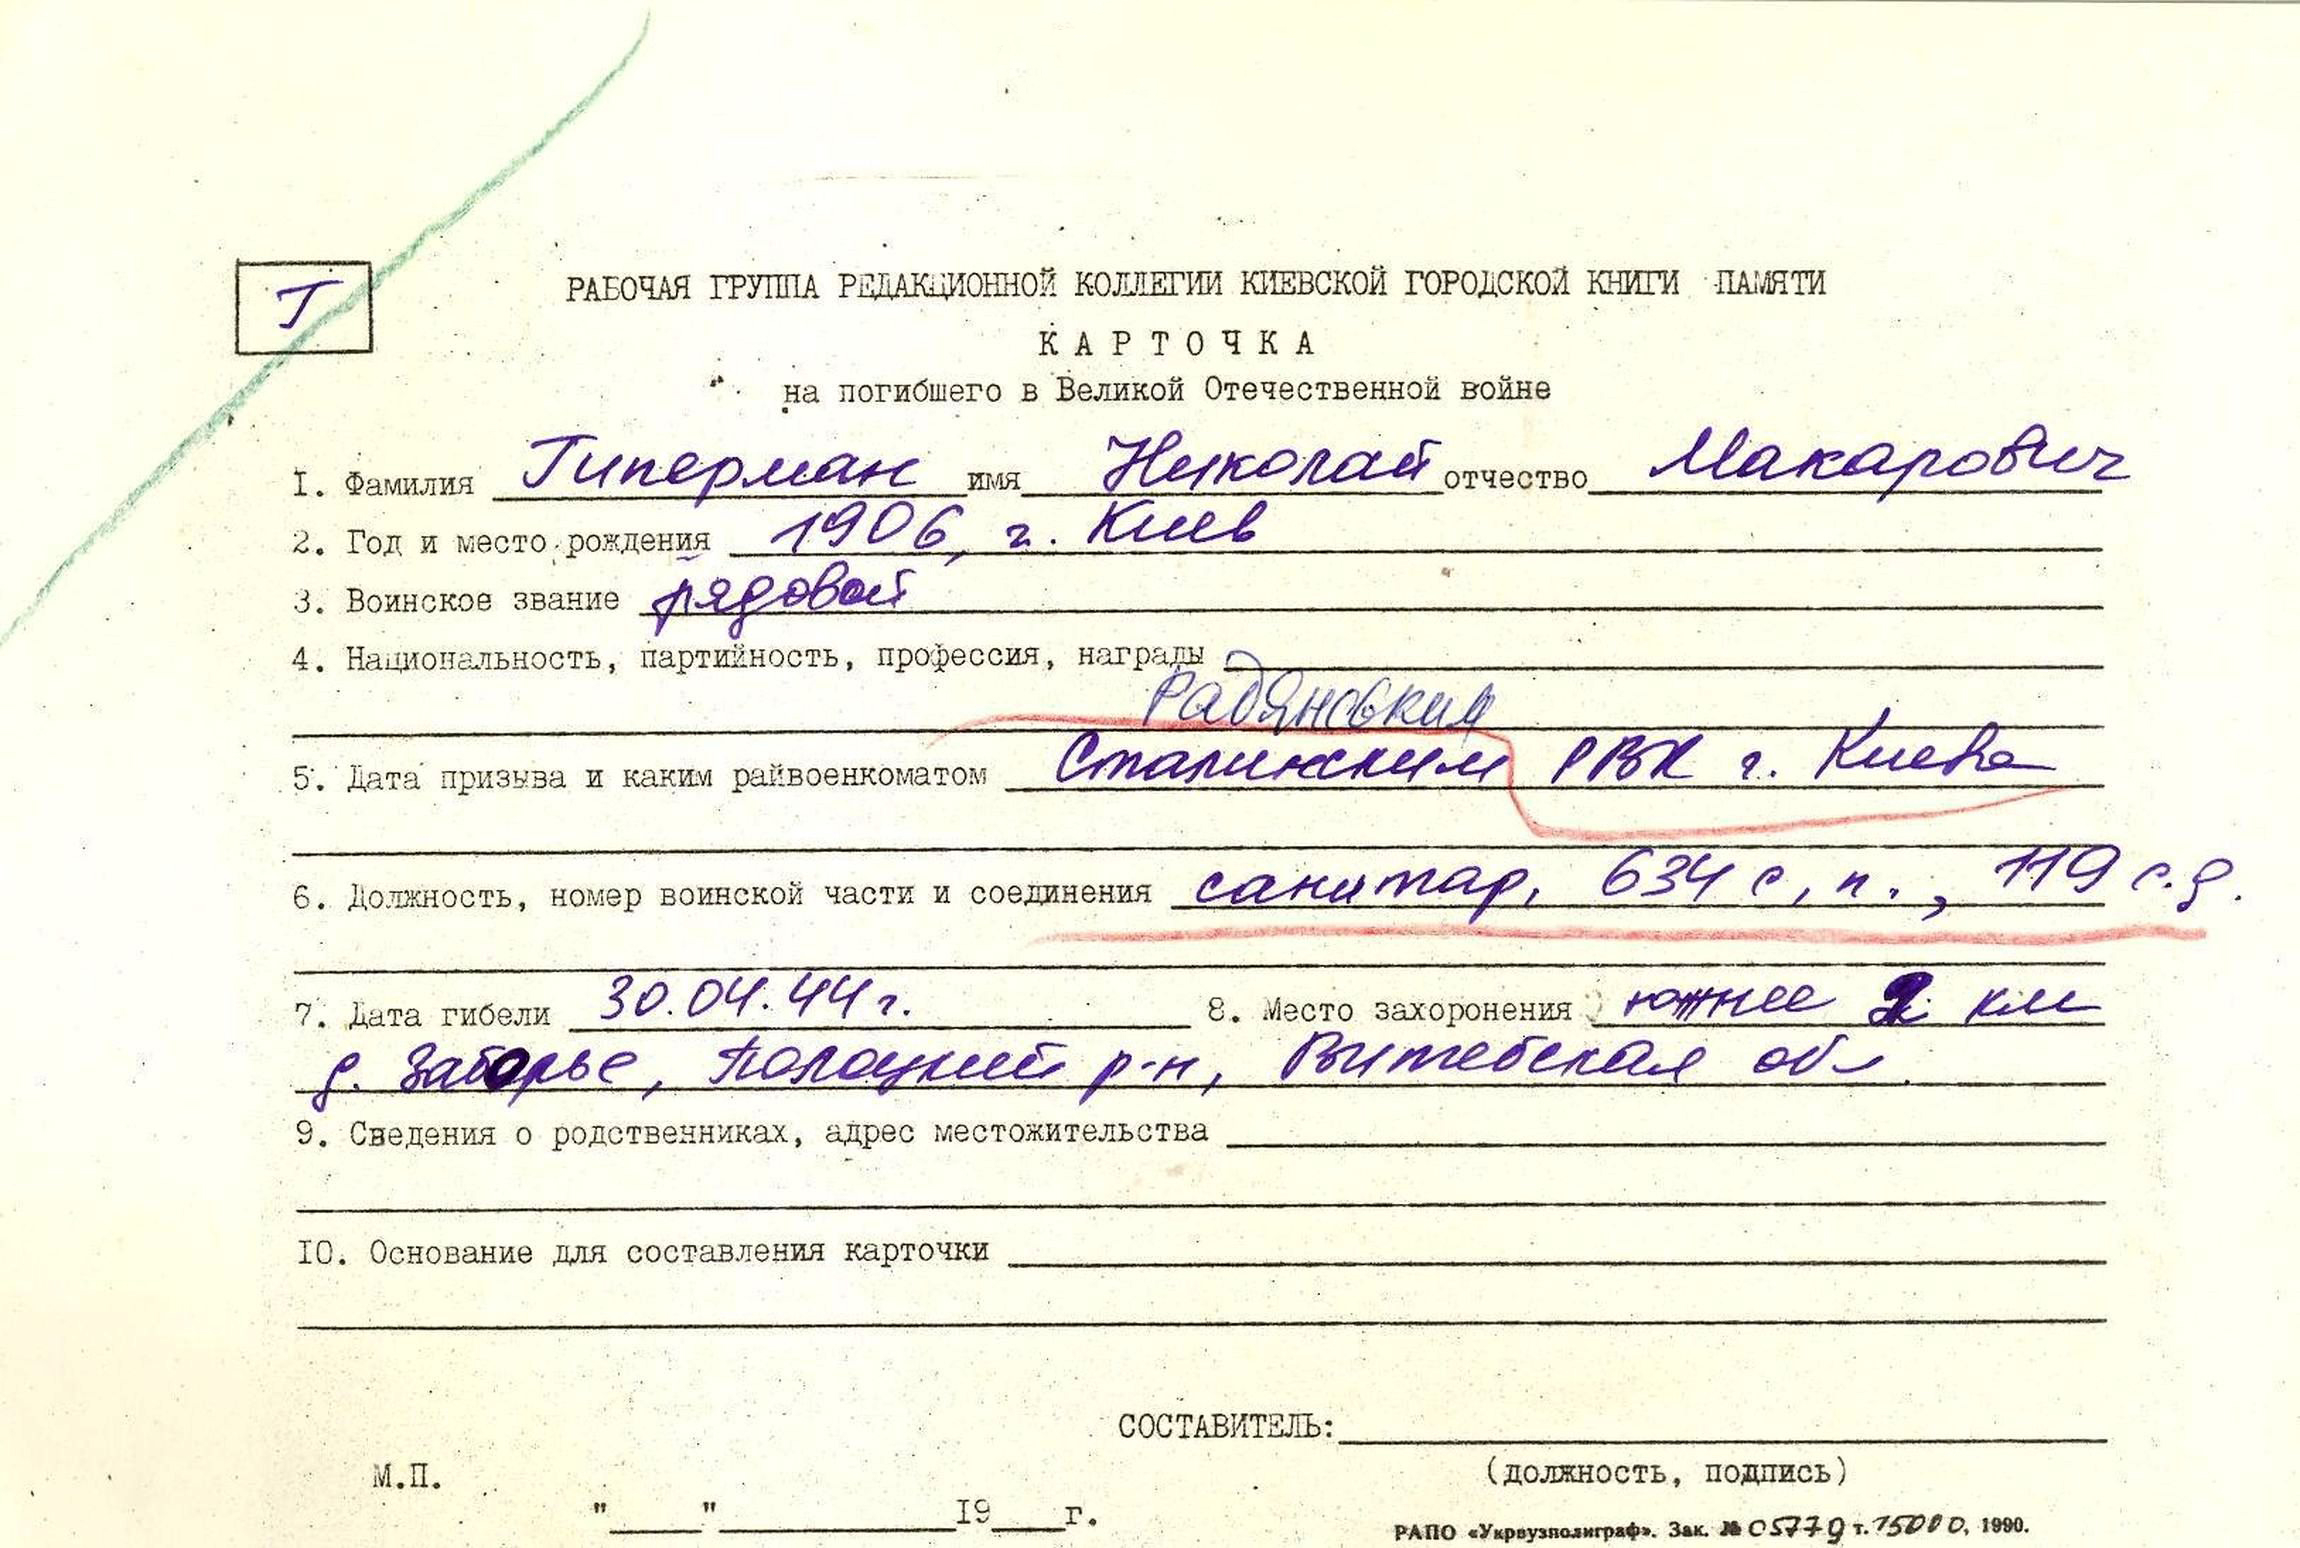 Г
РАБОЧАЯ ГРУППА РЕДАКЦИОННОЙ КОЛЛЕГИИ КИЕВСКОЙ ГОРОДСКОЙ КНИГИ ПАМЯТИ
КАРТОЧКА
на погибшего в Великой Отечественной войне
1. Фамилия Гиперман имя Николай отчество Макарович
2. Год и место рождения 1906, г. Киев
3. Воинское звание рядовой
4. Национальность, партийность, профессия, награды
Радянський
5. Дата призыва и каким райвоенкоматом Сталинским РВК г. Киева
6. Должность, номер воинской части и соединения санитар, 634 с.п., 119 с.д.
7. Дата гибели 30.04.44 г. 8. Место захоронения южнее 2 км
д. Заборье, Полоцкий р-н, Витебская обл.
9. Сведения о родственниках, адрес местожительства
10. Основание для составления карточки
СОСТАВИТЕЛЬ:
(должность, подпись)
М.П.
"____"__________19___г.
РАПО «Укрвузполиграф». Зак. № 05779 т. 15000, 1990.